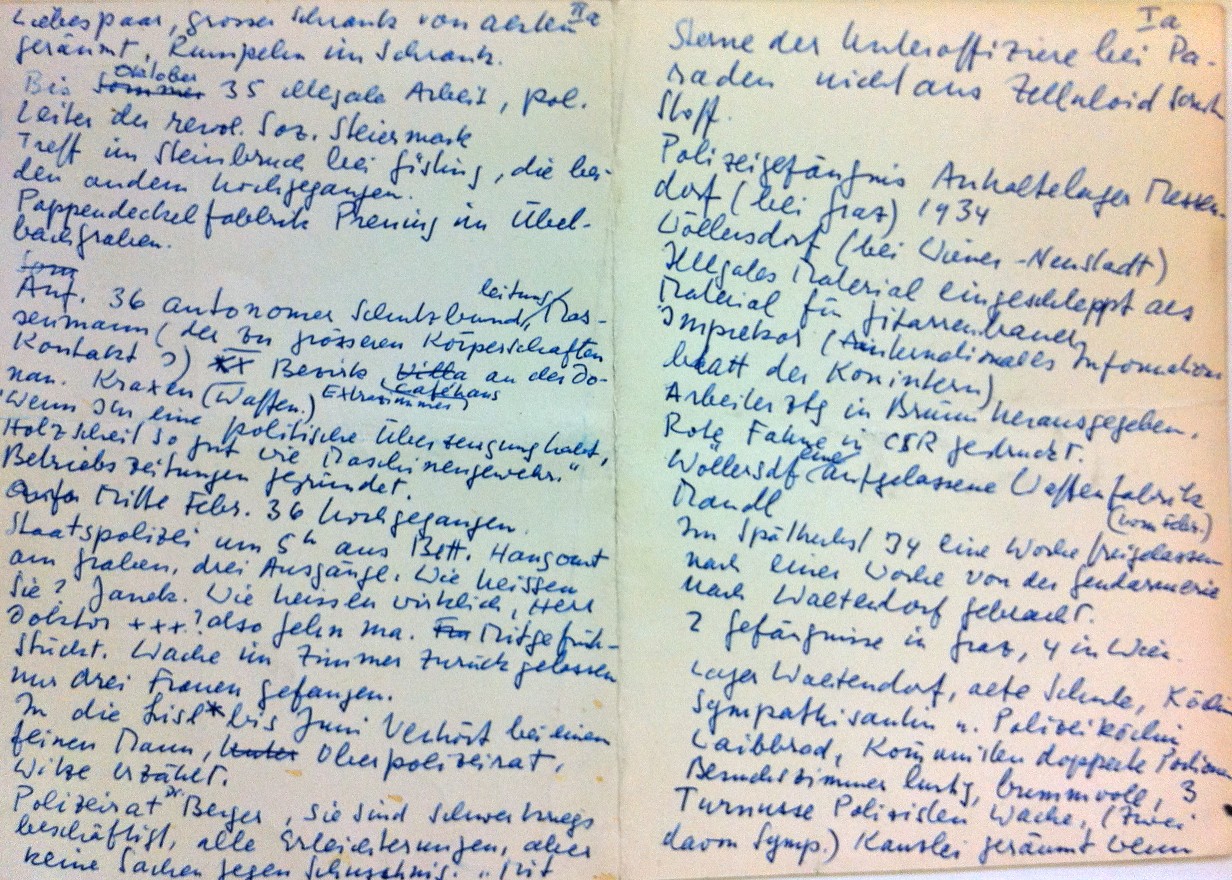 IIa
Liebespaar, grosser Schrank von Akten
geräumt, Rumpeln im Schrank.
Oktober
Bis Sommer 35 illegale Arbeit, pol.
Leiter der revol. Soz. Steiermark
Treff im Steinbruch bei Gösting, die bei-
den andern hochgegangen.
Pappendeckelfabbrik Prening im Übel-
bachgraben.
Som
leitung
Anf. 36 autonomer Schutzbund, Mas-
senmann (der zu grösseren Körperschaften
Kontakt?) XX Bezirk Villa an der Do-
nau. Kraxen (Waffen.) Extrazimmer Caféhaus
"Wenn Ihr eine politische Überzeugung habt,
Holzscheit so gut wie Maschinengewehr."
Betriebszeitungen gegründet.
Mitte Febr. 36 hochgegangen.
Staatspolizei um 5h aus Bett. Hangout
am Graben, drei Ausgänge. Wie heissen
Sie? Janda. Wie heissen wirklich, Herr
Doktor +++? also gehn ma. Mitgefrüh-
stückt. Wache im Zimmer zurückgelassen
nur drei Frauen gefangen.
In die Lisl* bis Juni Verhört bei einem
feinen Mann, Unter Oberpolizeirat,
Witze erzählt.
Polizeirat Dr Berger, Sie sind schwer kriegs
beschäftigt, alle Erleichterungen, aber
keine Sachen gegen Schuschnig. "Mit
Ia
Sterne der Unteroffiziere bei Pa-
raden nicht aus Zelluloid sondern
Stoff.
Polizeigefängnis Anhaltelager Messen-
dorf (bei Graz) 1934
Wöllersdorf (bei Wiener-Neustadt)
Illegales Material eingeschleppt als
Material für Gitarrenbauer
Imprekor (Internationales Information
blatt der Komintern)
Arbeiterztg in Brünn herausgegeben.
Rote Fahne in CSR gedruckt.
Wöllersdf einer aufgelassene Waffenfabrik
Mandl
(vom Febr.)
Im Spätherbst 34 eine Woche freigelassen
nach einer Woche von der Gendarmerie
nach Waltendorf gebracht.
2 Gefängnisse in Graz, 4 in Wien.
Lager Waltendorf, alte Schule, Köchin
Sympathisantin u. Polizeiköchin
Laibbrod, Kommunisten doppelte Portionen
Besuchszimmer lustig, bummvoll, 3
Turnusse Polizisten Wache, (zwei
davon Symp.) Kanzlei geräumt wenn